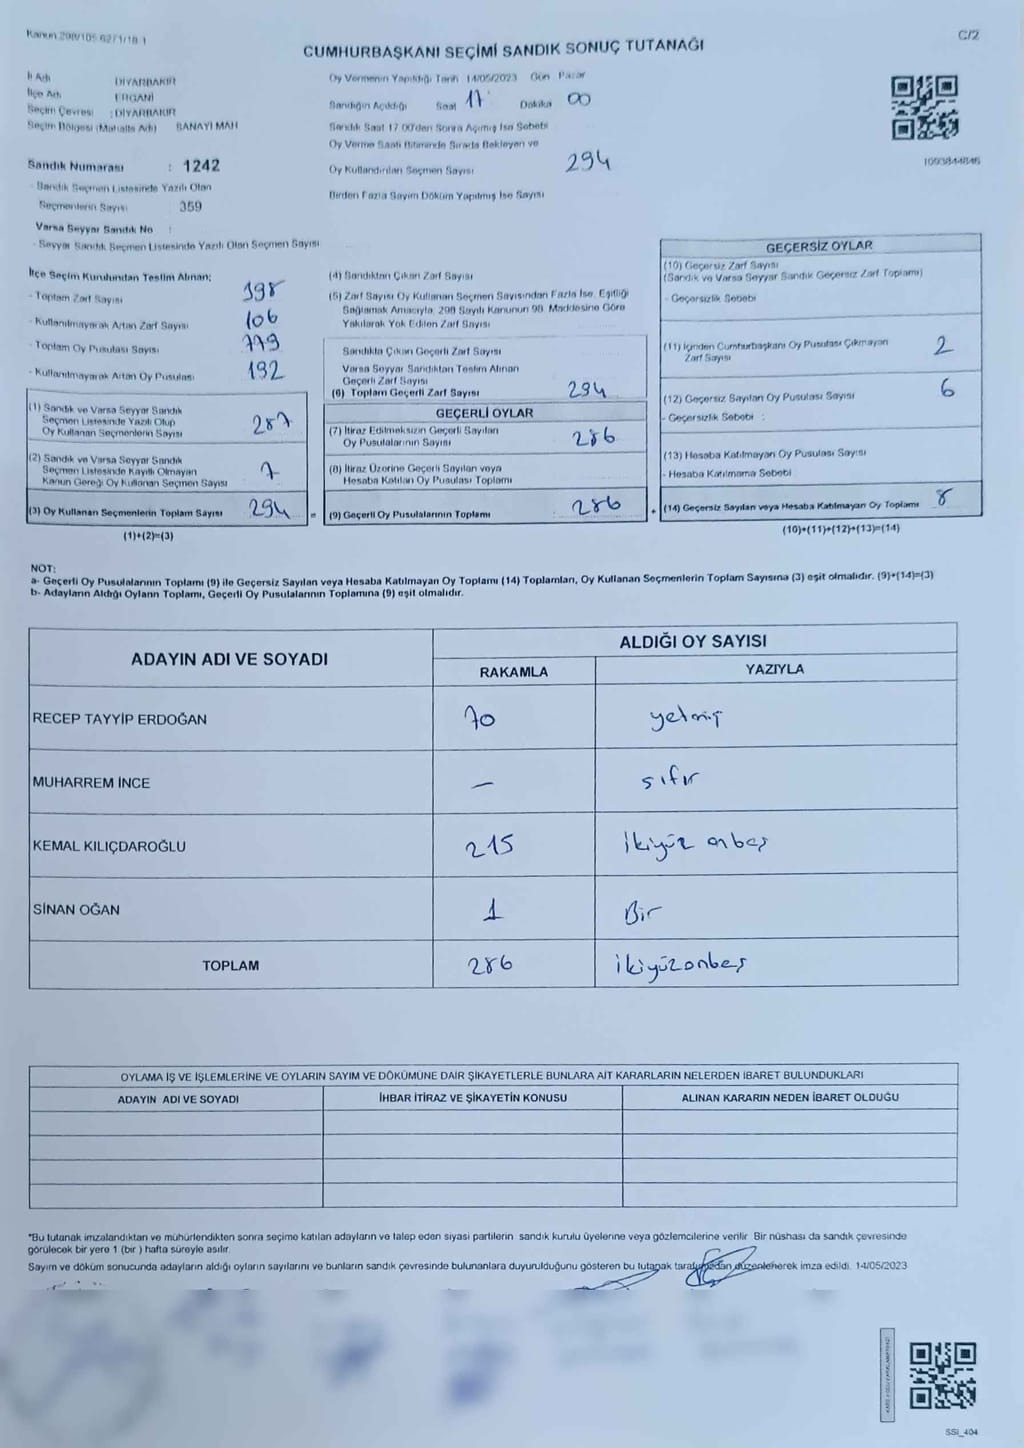 Kanun 298/105 6271/18 1
C/2
CUMHURBAŞKANI SEÇİMİ SANDIK SONUÇ TUTANAĞI
İl Adı DİYARBAKIR
İlçe Adı ERGANİ
Seçim Çevresi : DİYARBAKIR
Seçim Bölgesi (Mahalle Adı) SANAYİ MAH
Sandık Numarası : 1242
- Sandık Seçmen Listesinde Yazılı Olan
Seçmenlerin Sayısı 359
Varsa Seyyar Sandık No :
- Seyyar Sandık Seçmen Listesinde Yazılı Olan Seçmen Sayısı
Oy Vermenin Yapıldığı Tarih 14/05/2023 Gün Pazar
Sandığın Açıldığı Saat 17 Dakika 00
Sandık Saat 17 00'den Sonra Açımış İse Sebebi
Oy Verme Saati Bitiminde Sırada Bekleyen ve
Oy Kullandırılan Seçmen Sayısı 294
Birden Fazla Sayım Döküm Yapılmış İse Sayısı
1093844846
İlçe Seçim Kurulundan Teslim Alınan;
- Toplam Zarf Sayısı 398
- Kullanılmayarak Artan Zarf Sayısı 106
- Toplam Oy Pusulası Sayısı
- Kullanılmayarak Artan Oy Pusulası 192
(1) Sandık ve Varsa Seyyar Sandık
Seçmen Listesinde Yazılı Olup
Oy Kullanan Seçmenlerin Sayısı 287
(2) Sandık ve Varsa Seyyar Sandık
Seçmen Listesinde Kayıtlı Olmayan
Kanun Gereği Oy Kullanan Seçmen Sayısı 7
(3) Oy Kullanan Seçmenlerin Toplam Sayısı 294
(1)+(2)=(3)
(4) Sandıktan Çıkan Zarf Sayısı
(5) Zarf Sayısı Oy Kullanan Seçmen Sayısından Fazla İse, Eşitliği
Sağlamak Amacıyla, 298 Sayılı Kanunun 98. Maddesine Göre
Yakılarak Yok Edilen Zarf Sayısı
Sandıkta Çıkan Geçerli Zarf Sayısı
Varsa Seyyar Sandıktan Teslim Alınan
Geçerli Zarf Sayısı
(6) Toplam Geçerli Zarf Sayısı 294
GEÇERLİ OYLAR
(7) İtiraz Edilmeksizin Geçerli Sayılan
Oy Pusulalarının Sayısı 286
(8) İtiraz Üzerine Geçerli Sayılan veya
Hesaba Katılan Oy Pusulası Toplamı
= (9) Geçerli Oy Pusulalarının Toplamı 286
GEÇERSİZ OYLAR
(10) Geçersiz Zarf Sayısı
(Sandık ve Varsa Seyyar Sandık Geçersiz Zarf Toplamı)
- Geçersizlik Sebebi
(11) İçinden Cumhurbaşkanı Oy Pusulası Çıkmayan
Zarf Sayısı 2
(12) Geçersiz Sayılan Oy Pusulası Sayısı 6
- Geçersizlik Sebebi :
(13) Hesaba Katılmayan Oy Pusulası Sayısı
- Hesaba Katılmama Sebebi
+ (14) Geçersiz Sayılan veya Hesaba Katılmayan Oy Toplamı 8
(10)+(11)+(12)+(13)=(14)
NOT:
a- Geçerli Oy Pusulalarının Toplamı (9) ile Geçersiz Sayılan veya Hesaba Katılmayan Oy Toplamı (14) Toplamları, Oy Kullanan Seçmenlerin Toplam Sayısına (3) eşit olmalıdır. (9)+(14)=(3)
b- Adayların Aldığı Oyların Toplamı, Geçerli Oy Pusulalarının Toplamına (9) eşit olmalıdır.
ADAYIN ADI VE SOYADI
ALDIĞI OY SAYISI
RAKAMLA YAZIYLA
RECEP TAYYİP ERDOĞAN 70 yetmiş
MUHARREM İNCE — sıfır
KEMAL KILIÇDAROĞLU 215 İkiyüz onbeş
SİNAN OĞAN 1 Bir
TOPLAM 286 İkiyüzonbeş
OYLAMA İŞ VE İŞLEMLERİNE VE OYLARIN SAYIM VE DÖKÜMÜNE DAİR ŞİKAYETLERLE BUNLARA AİT KARARLARIN NELERDEN İBARET BULUNDUKLARI
ADAYIN ADI VE SOYADI İHBAR İTİRAZ VE ŞİKAYETİN KONUSU ALINAN KARARIN NEDEN İBARET OLDUĞU
*Bu tutanak imzalandıktan ve mühürlendikten sonra seçime katılan adayların ve talep eden siyasi partilerin sandık kurulu üyelerine veya gözlemcilerine verilir Bir nüshası da sandık çevresinde
görülecek bir yere 1 (bir) hafta süreyle asılır.
Sayım ve döküm sonucunda adayların aldığı oyların sayılarını ve bunların sandık çevresinde bulunanlara duyurulduğunu gösteren bu tutanak tarafımızdan düzenlenerek imza edildi. 14/05/2023
SSI_404